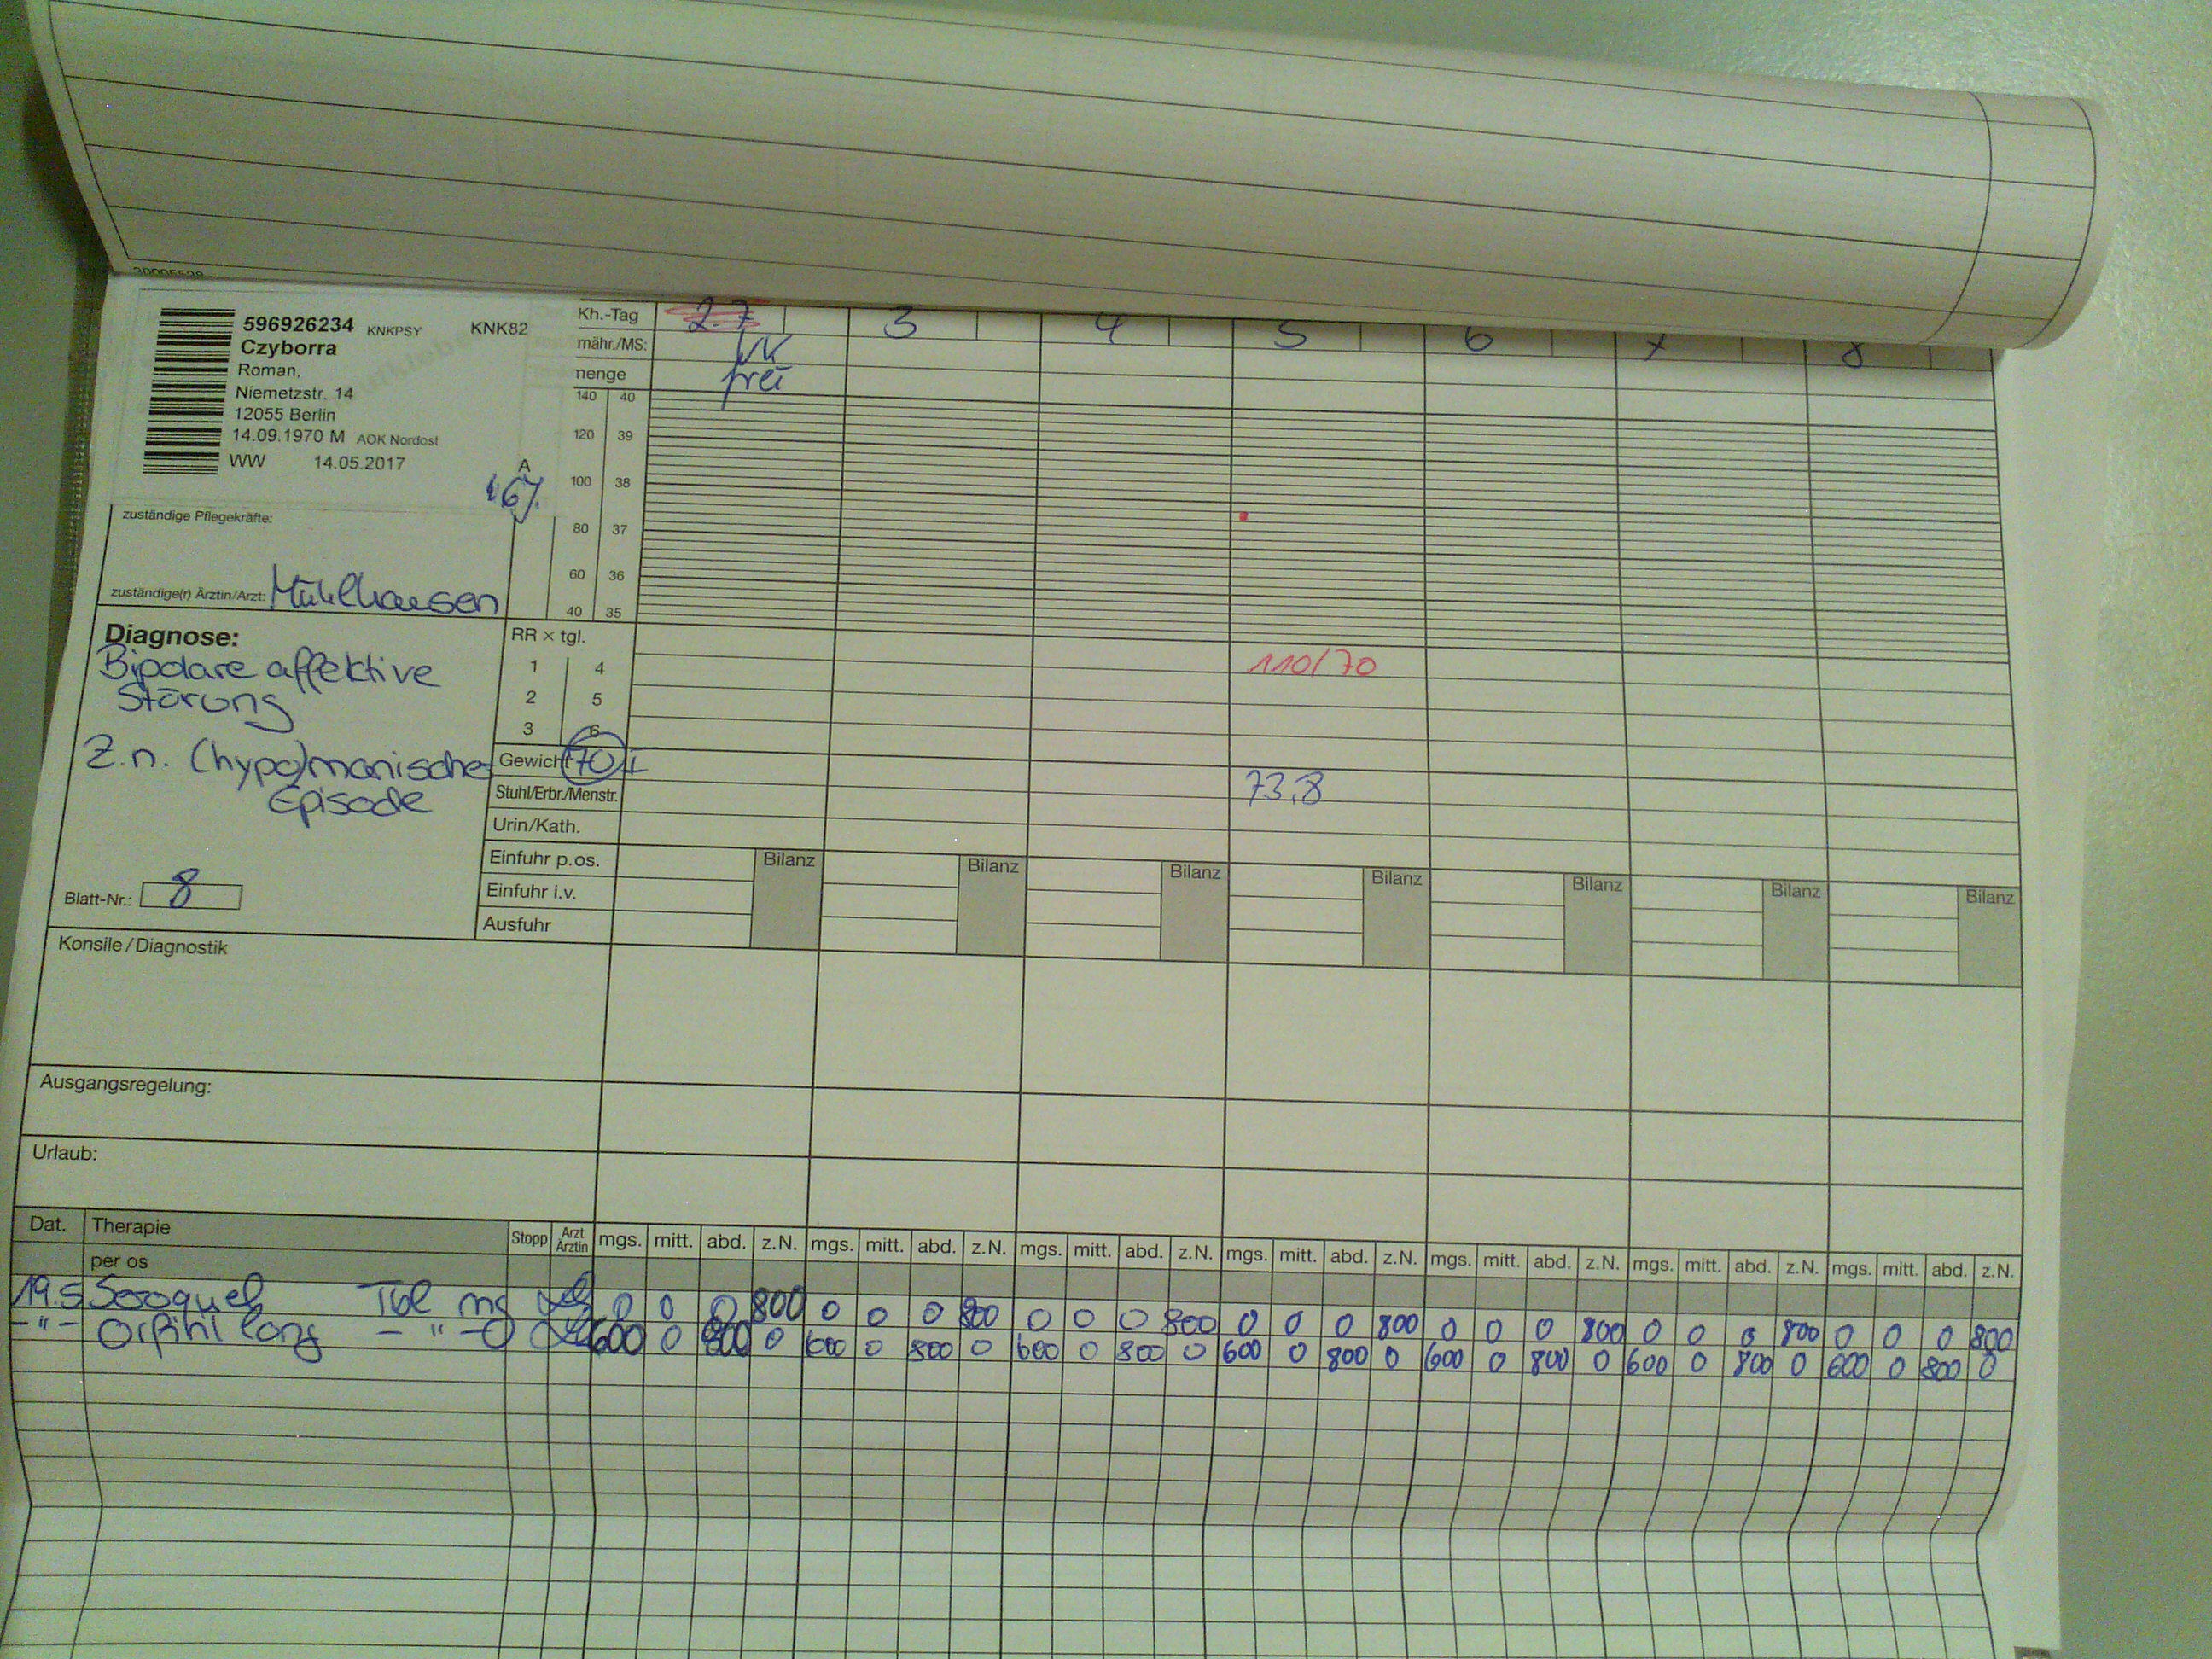 596926234 KNKPSY KNK82
Czyborra
Roman,
Niemetzstr. 14
12055 Berlin
14.09.1970 M AOK Nordost
WW 14.05.2017
A
Kh.-Tag 2.7 3 4 5 6 7 8
nähr./MS: VK
menge frei
140 40
120 39
100 38
80 37
60 36
40 35
zuständige Pflegekräfte:
zuständige(r) Ärztin/Arzt: Mühlhausen
Diagnose:
Bipolare affektive
Störung
Z.n. (hypo)manischer
Episode
Blatt-Nr.: 8
RR × tgl.
1 4 110/70
2 5
3 6
Gewicht 70
73,8
Stuhl/Erbr./Menstr.
Urin/Kath.
Einfuhr p.os. Bilanz Bilanz Bilanz Bilanz Bilanz Bilanz Bilanz
Einfuhr i.v.
Ausfuhr
Konsile/Diagnostik
Ausgangsregelung:
Urlaub:
Dat. Therapie Stopp Arzt Ärztin mgs. mitt. abd. z.N. mgs. mitt. abd. z.N. mgs. mitt. abd. z.N. mgs. mitt. abd. z.N. mgs. mitt. abd. z.N. mgs. mitt. abd. z.N. mgs. mitt. abd. z.N.
per os
19.5 Seroquel Tbl mg 0 0 0 800 0 0 0 800 0 0 0 800 0 0 0 800 0 0 0 800 0 0 0 800 0 0 0 800
-"- Orfiril long -"- 600 0 800 0 600 0 800 0 600 0 800 0 600 0 800 0 600 0 800 0 600 0 800 0 600 0 800 0